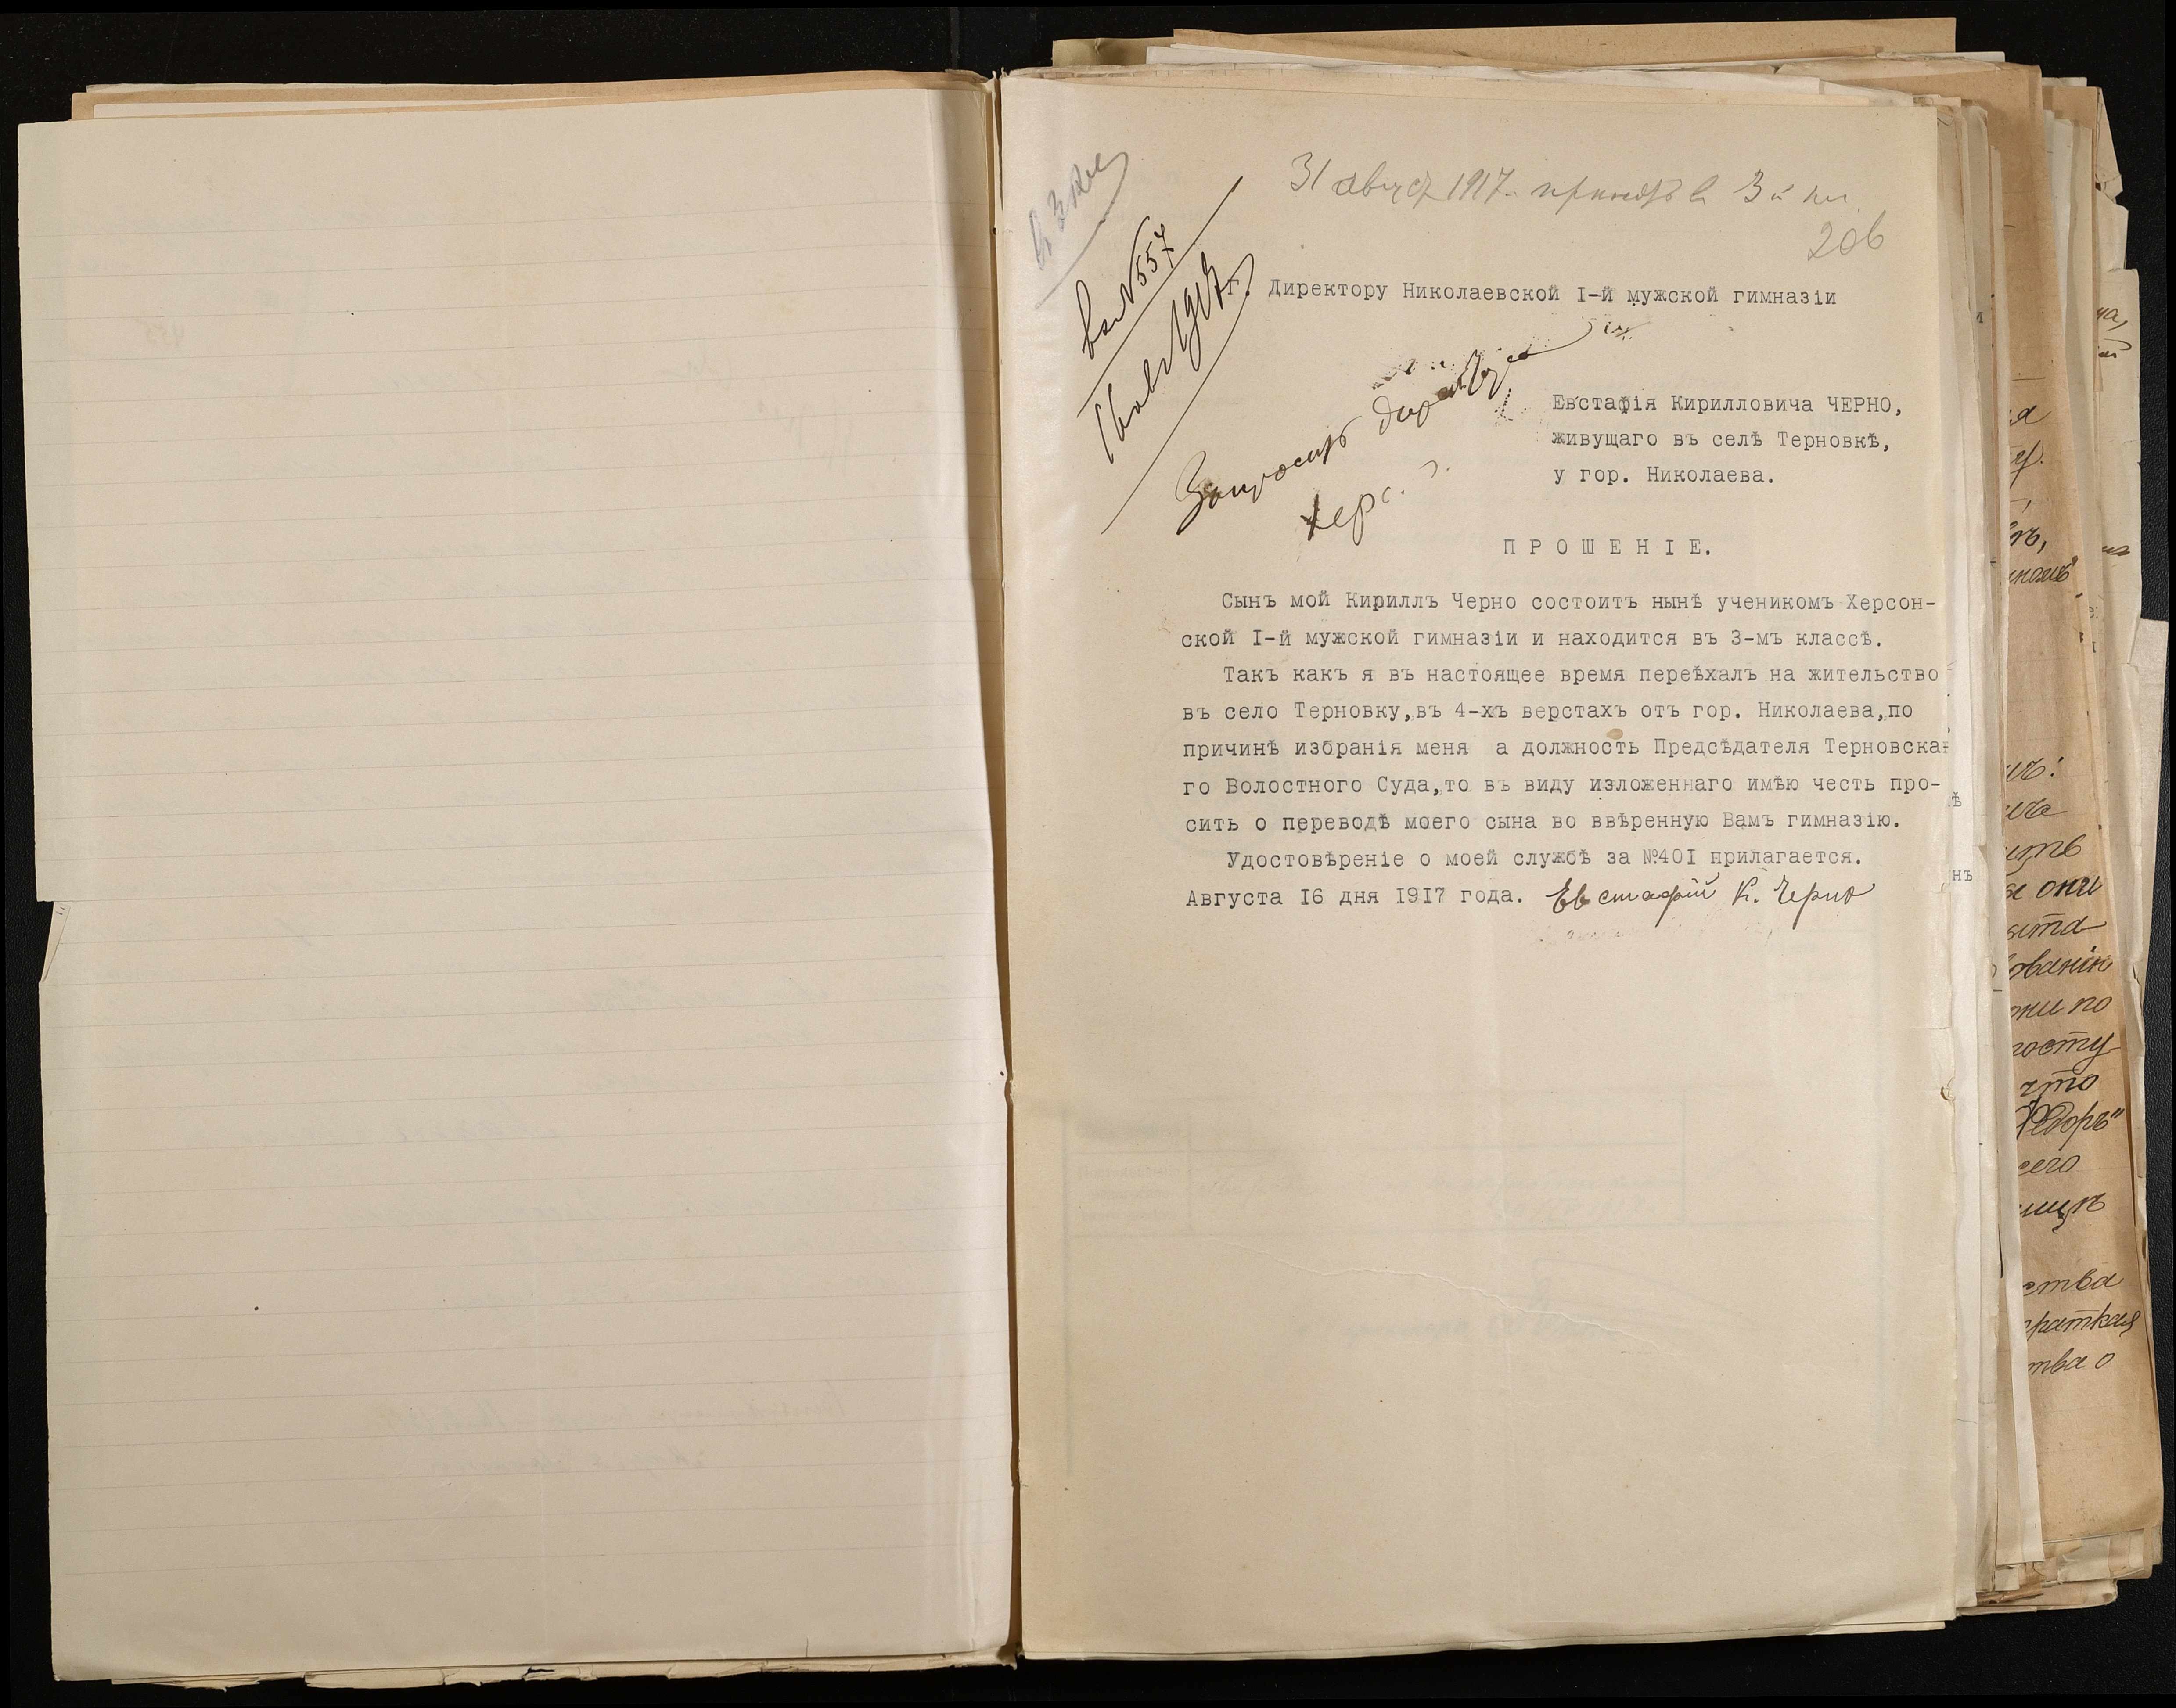 31 август 1917 г. принять в 3й кл.
206
в 3 кл
вх №557
16 авг 1917
Г. Директору Николаевской I-й мужской гимназіи
Запросить
Херс.
Евстафія Кирилловича ЧЕРНО,
живущаго въ селѣ Терновкѣ,
у гор. Николаева.
ПРОШЕНІЕ.
Сынъ мой Кириллъ Черно состоитъ нынѣ ученикомъ Херсон-
ской I-й мужской гимназіи и находится въ 3-мъ классѣ.
Такъ какъ я въ настоящее время переѣхалъ на жительство
въ село Терновку, въ 4-хъ верстахъ отъ гор. Николаева, по
причинѣ избранія меня а должность Предсѣдателя Терновска-
го Волостного Суда, то въ виду изложеннаго имѣю честь про-
сить о переводѣ моего сына во ввѣренную Вамъ гимназію.
Удостовѣреніе о моей службѣ за №40I прилагается.
Августа I6 дня I9I7 года. Евстафій К. Черно